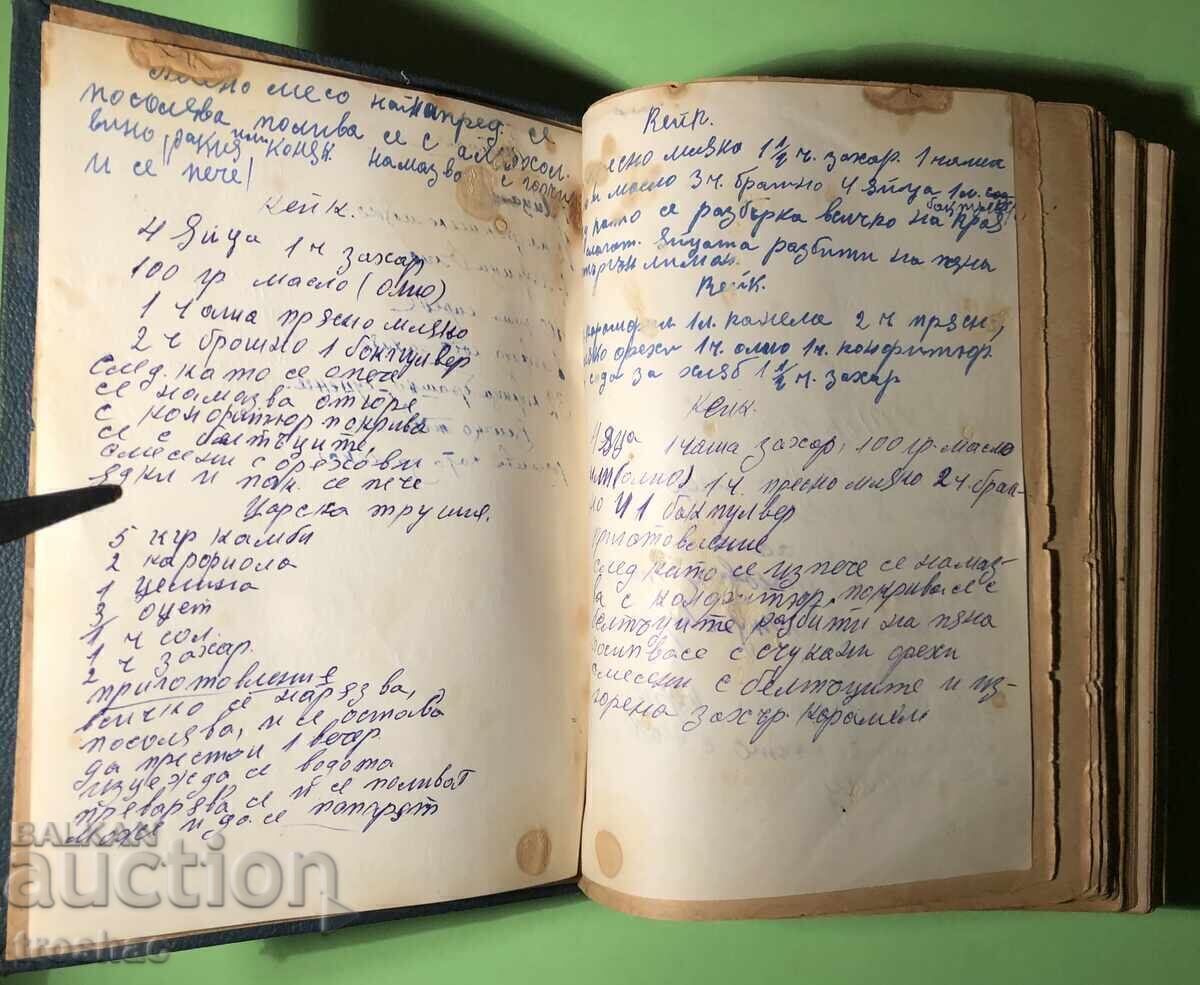 месо найнапред се
посолява полива се с алкохол.
вино/ракия или коняк намазва с горчи
и се пече!
Кейк.
4 Яйца 1 ч захар
100 гр масло (олио)
1 чаша прясно мляко
2 ч брашно 1 бакпулвер
след като се опече
се намазва отгоре
с конфитюр покрива
се с белтъците,
смесени с орехови
ядки и пак се пече
Царска трушия.
5 кгр камби
2 карфиола
1 целина
3 оцет
1 ч сол
2 ч захар.
приготовление
всичко се нарязва,
посолява, и се остава
да престои 1 вечер
изцежда се водата
преварява се и се поливат
може и да се попърят
Кейк.
ясно мляко 1 1/2 ч. захар. 1 чаша
масло 3 ч. брашно 4 яйца 1 л. со
бакпулвер
като се разбърка всичко на края
Яйцата разбити на пяна
лимон.
Кейк.
1 л. канела 2 ч прясн,
орехи 1 ч. олио 1 ч. конфитюр
сода за хляб 1 1/2 ч. захар
Кейк.
4 яца 1 чаша захар, 100 гр. масло
1 ч. пресно мляко 2 ч. браш-
но Ч 1 бакпулвер
приготовление
след като се изпече се намаз-
ва с конфитюр, покрива се с
белтъците разбити на пяна
посипва се с счукани орехи
смесени с белтъците и из-
горена захър карамел
BALKAN
auction
troshac